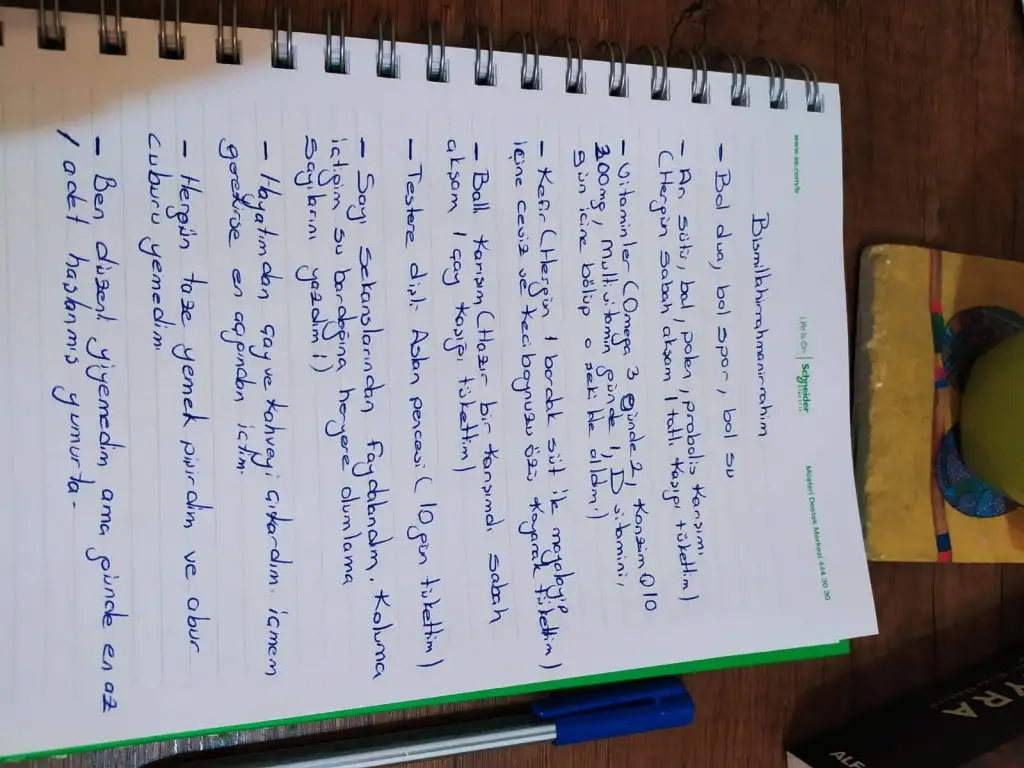 www.se.com/tr
Life Is On | Schneider Electric
Müşteri Destek Merkezi 444 30 30
Bismillahirrahmanirrahim
- Bol dua, bol spor, bol su
- Arı sütü, bal, polen, probolis karışımı
(Hergün sabah akşam 1 tatlı kaşığı tükettim)
- Vitaminler (Omega 3 günde 2, Konzim Q10
200mg, multi vitamin günde 1, D vitamini,
gün içine bölüp o şekilde aldım.)
- Kefir (Hergün 1 bardak süt ile mayalayıp
içine ceviz ve keçiboynuzu özü koyarak tükettim)
- Ballı Karışım (Hazır bir karışımdı sabah
akşam 1 çay kaşığı tükettim)
- Testere dişli Aslan pençesi (10 gün tükettim)
- Sayı Sekanslarından faydalandım. Koluma
içtiğim su bardağına heryere olumlama
sayılarını yazdım :))
- Hayatımdan çay ve kahveyi çıkardım. içmem
gerekirse en açığından içtim.
- Hergün taze yemek pişirdim ve abur
cuburu yemedim.
- Ben düzenli yiyemedim ama günde en az
1 adet haşlanmış yumurta.
YRA
ALF